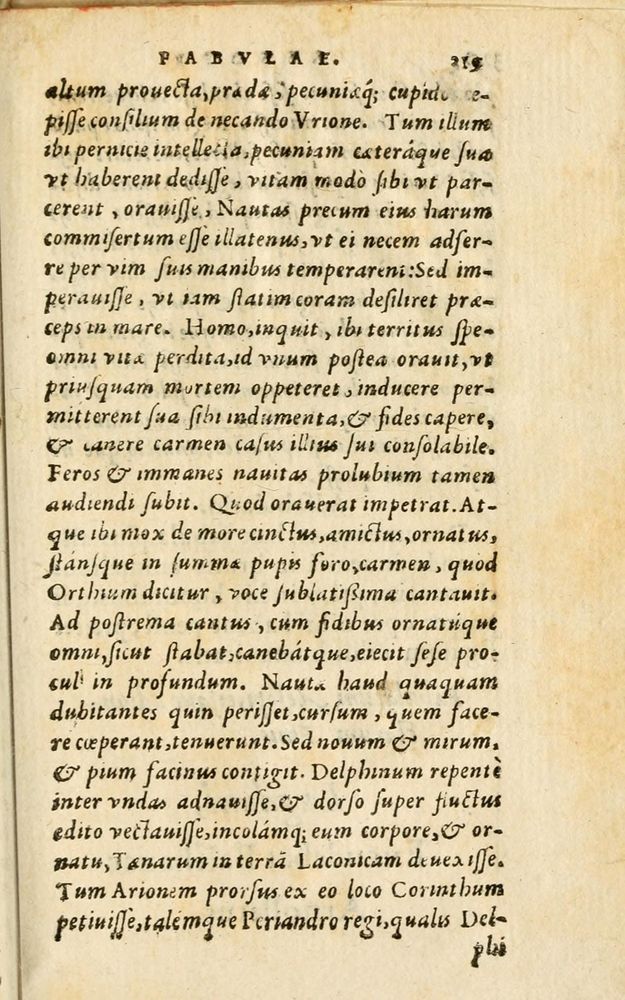 FABVLAE. 219
altum prouecta, prædæ, pecuniæq; cupidi
pisse consilium de necando Vrione. Tum illum
ibi pernicie intellecta, pecuniam cæteráque sua
vt haberent dedisse, vitam modò sibi vt par-
cerent, orauisse, Nautas precum eius harum
commisertum esse illatenus, vt ei necem adfer-
re per vim suis manibus temperarent: Sed im-
perauisse, vt iam statim coram desiliret præ-
ceps in mare. Homo, inquit, ibi territus spe
omni vitæ perdita, id vnum postea orauit, vt
priusquam mortem oppeteret, inducere per-
mitterent sua sibi indumenta, & fides capere,
& canere carmen casus illius sui consolabile.
Feros & immanes nauitas prolubium tamen
audiendi subit. Quod orauerat impetrat. At-
que ibi mox de more cinctus, amictus, ornatus,
stánsque in summæ pupis foro, carmen, quod
Orthium dicitur, voce sublatißima cantauit.
Ad postrema cantus, cum fidibus ornatúque
omni, sicut stabat, canebátque, eiecit sese pro-
cul in profundum. Nautæ haud quaquam
dubitantes quin perisset, cursum, quem face-
re cœperant, tenuerunt. Sed nouum & mirum,
& pium facinus contigit. Delphinum repentè
inter vndas adnauisse, & dorso super fluctus
edito vectauisse, incolámq; eum corpore, & or-
natu, Tænarum in terrā Laconicam deuexisse.
Tum Arionem prorsus ex eo loco Corinthum
petiuisse, talemque Periandro regi, qualis Del-
phi